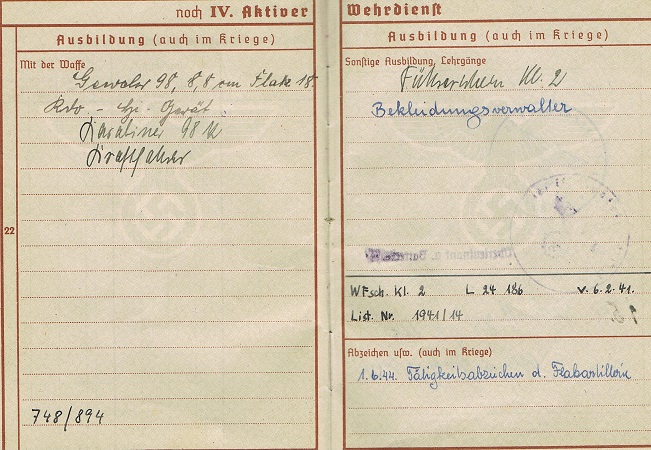 noch IV. Aktiver
Ausbildung (auch im Kriege)
Mit der Waffe
Gewehr 98, 8,8 cm Flak 18.
Kdo - Gerät
Karabiner 98 K
Kraftfahrer
22
748/894
Wehrdienst
Ausbildung (auch im Kriege)
Sonstige Ausbildung, Lehrgänge
Führerschein Kl. 2
Bekleidungsverwalter
WFsch. Kl. 2 L 24 186 v. 6.2.41.
List. Nr. 1941/14
Abzeichen usw. (auch im Kriege)
1.6.44. Tätigkeitsabzeichen d. Flakartillerie